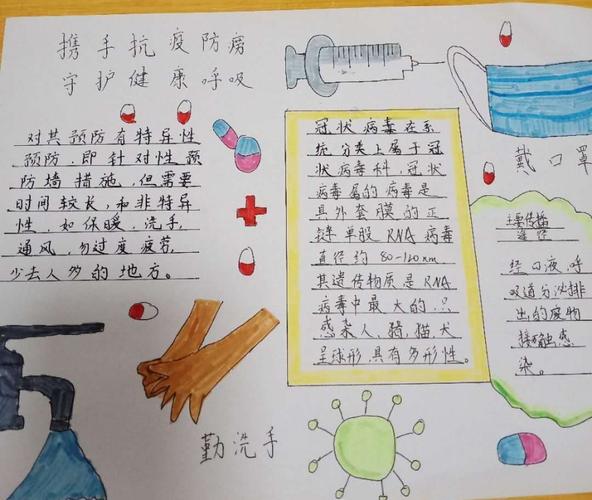 携手抗疫防痨
守护健康呼吸
对其预防有特异性
预防,即针对性预
防墙措施,但需要
时间较长,和非特异
性,如保暖,洗手,
通风,勿过度疲劳,
少去人多的地方。
冠状病毒在系
统分类上属于冠
状病毒科,冠状
病毒属的病毒是
具外套膜的正
链单股RNA病毒
直径约80-120nm
其遗传物质是RNA
病毒中最大的,只
感染人,猪,猫犬
呈球形,具有多形性。
戴口罩
主要传播
途径
经口液,呼
吸道分泌排
出的废物
接触感
染。
勤洗手